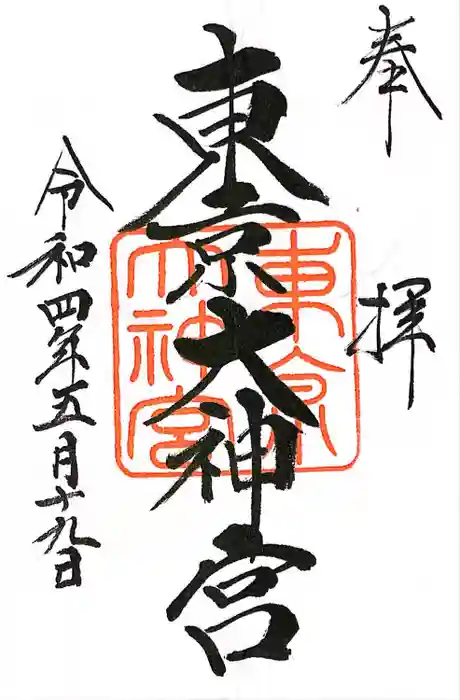 奉拝
東京大神宮
東京大神宮
令和四年五月十九日